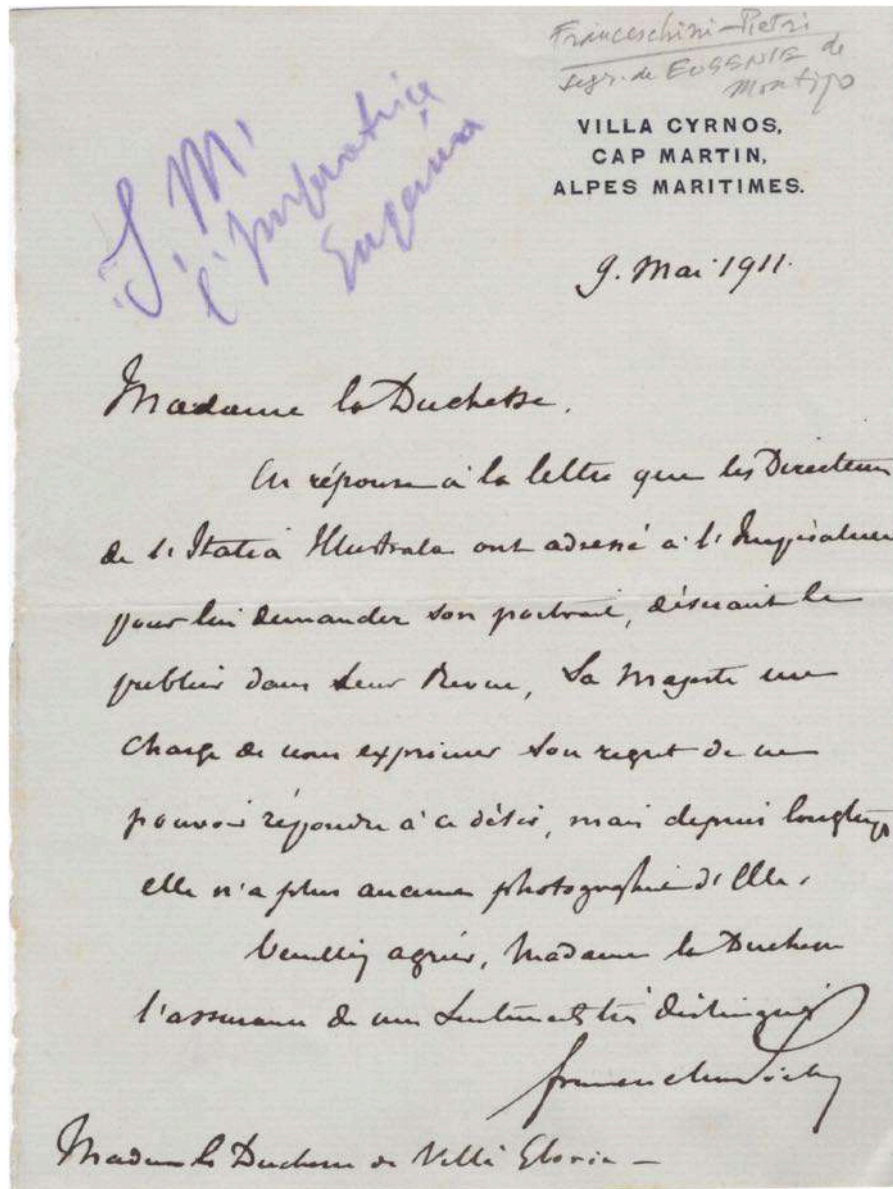 Franceschini-Pietri
segr. de EUGENIE de
Montijo
S. M.
l'Imperatrice
Eugenia
VILLA CYRNOS,
CAP MARTIN,
ALPES MARITIMES.
9. Mai 1911.
Madame la Duchesse.
En réponse à la lettre que les Directeurs
de l'Italia Illustrata ont adressé à l'Impératrice
pour lui demander son portrait, désirant le
publier dans leur Revue, Sa Majesté me
charge de vous exprimer son regret de ne
pouvoir répondre à ce désir, mais depuis longtemps
elle n'a plus aucune photographie d'Elle.
Veuillez agréer, Madame la Duchesse
l'assurance de mes sentiments très distingués
Franceschini Pietri
Madame la Duchesse de Villa Gloria —